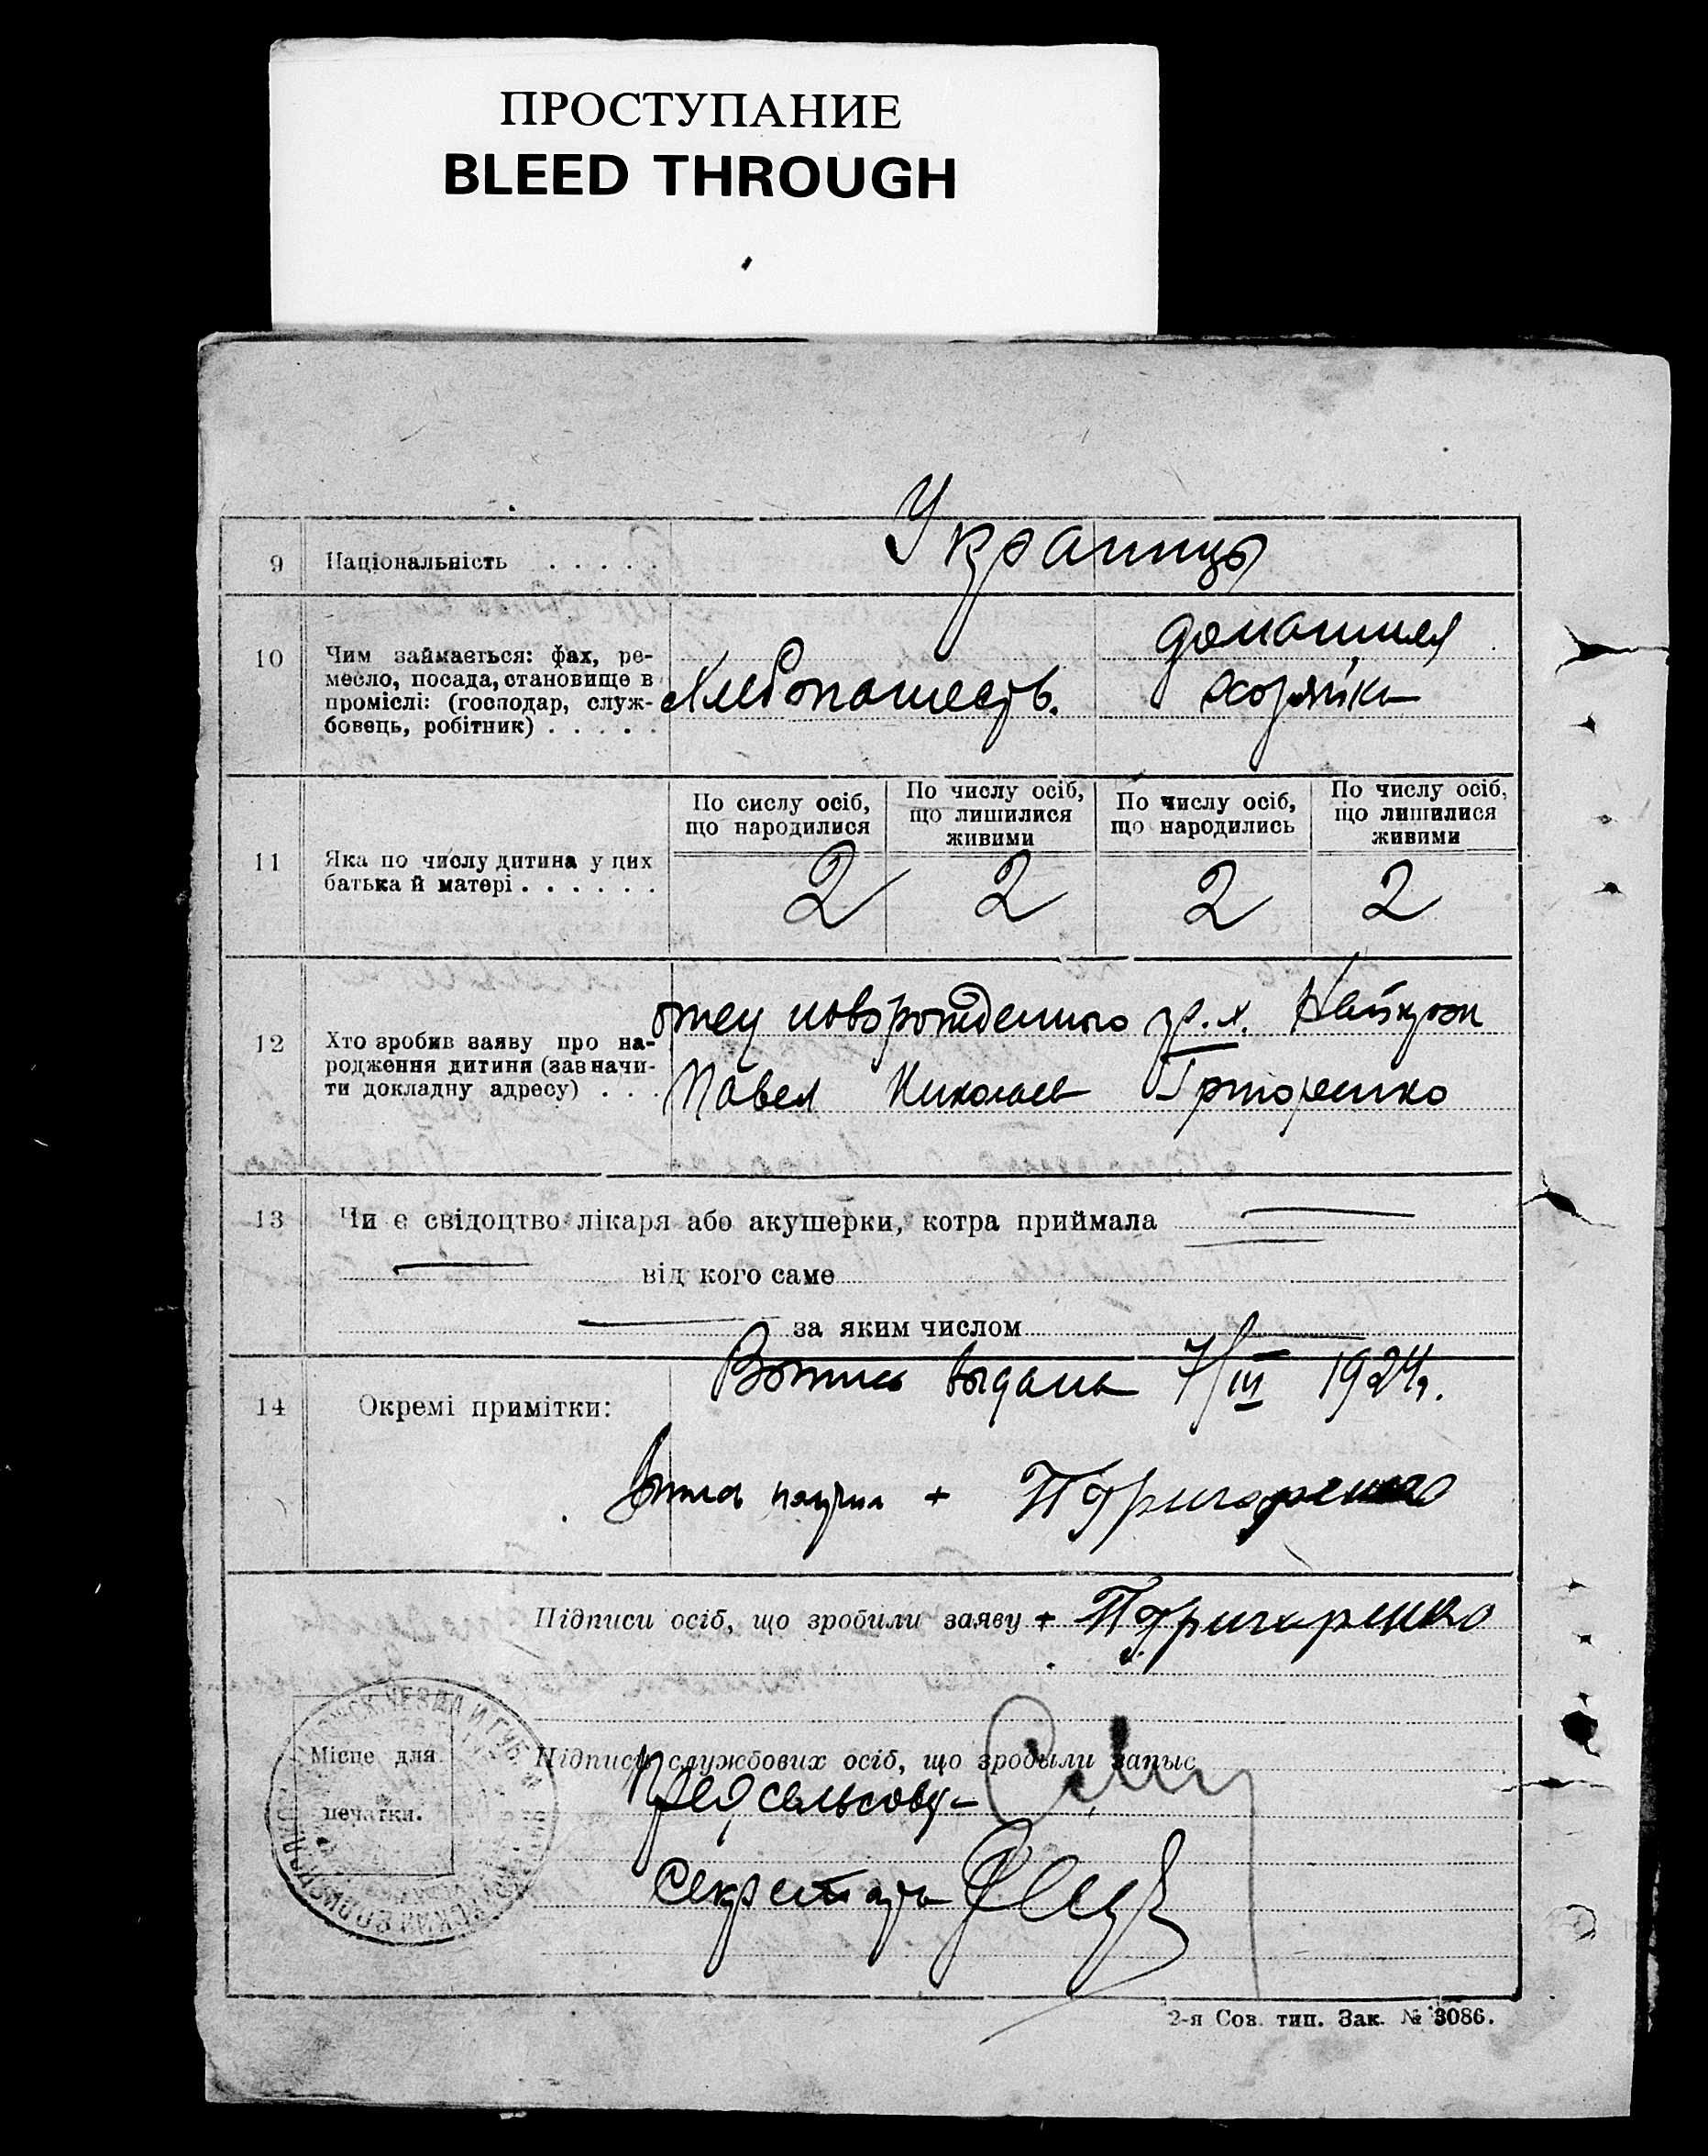 ПРОСТУПАНИЕ
BLEED THROUGH
9 Національність . . . . . Украинцы
10 Чим займається: фах, ре-
месло, посада, становище в
промислі: (господар, служ-
бовець, робітник) . . . . .
Хлебопашест.
домашняя
хозяйка
По сислу осіб,
що народилися
По числу осіб,
що лишилися
живими
По числу осіб,
що народились
По числу осіб,
що лишилися
живими
11 Яка по числу дитина у цих
батька й матері . . . . . .
2 2 2 2
12 Хто зробив заяву про на-
родження дитини (завначи-
ти докладну адресу) . . .
отец новорожденного гр. х.
Павел Николаев Григоренко
13 Чи є свідоцтво лікаря або акушерки, котра приймала
від кого саме
за яким числом
14 Окремі примітки:
Выпись выдана 7/III 1924 г.
Выпись + П Григоренко
Підписи осіб, що зробили заяву + П Григоренко
Місце для
печатки.
Підписи службових осіб, що зродыли запыс
Пред сельсову-
Секретарь
2-я Сов. тип. Зак. № 3086.